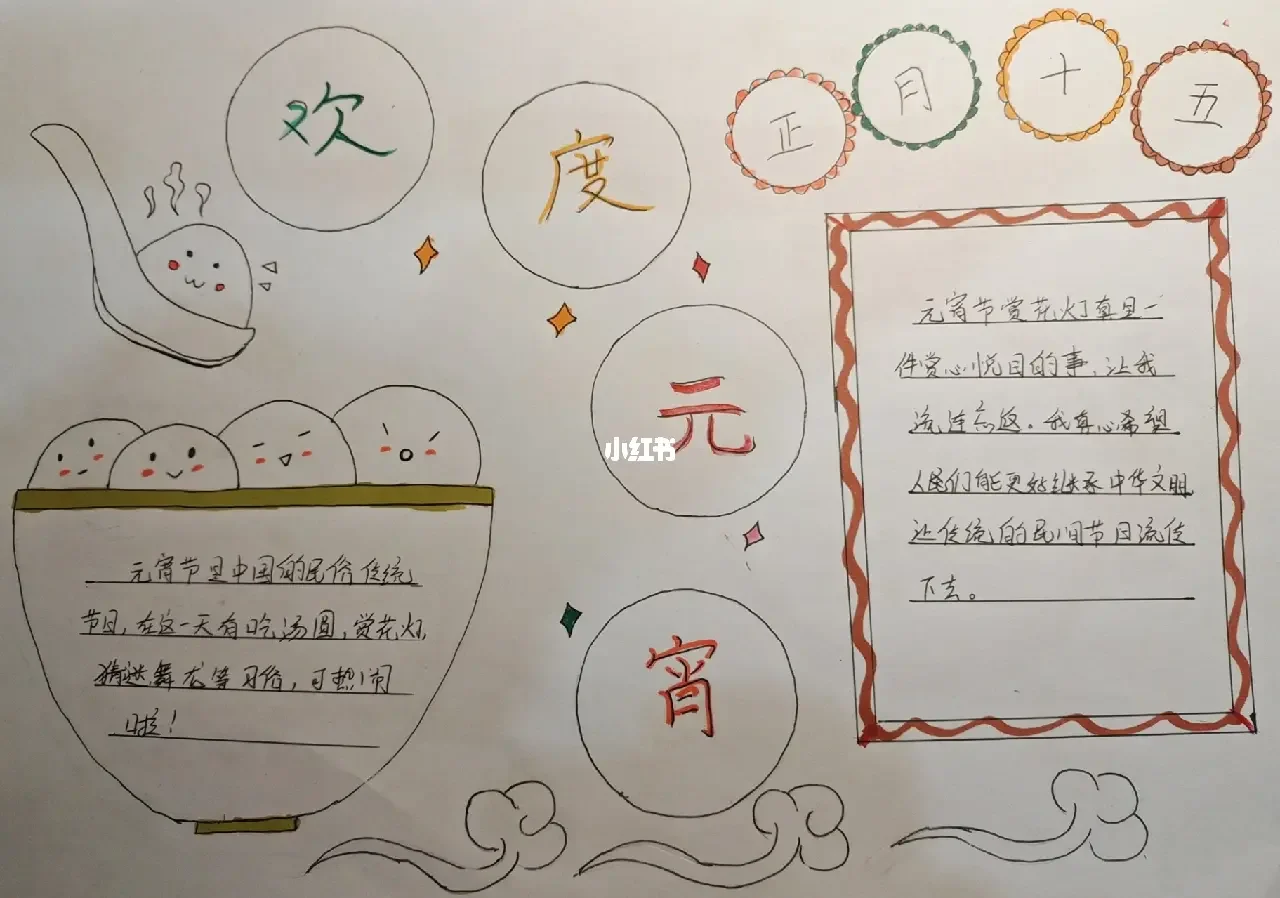 欢
度
元
宵
正
月
十
五
元宵节赏花灯真是一
件赏心悦目的事,让我
流连忘返。我真心希望
人民们能更好继承中华文明
让传统的民间节日流传
下去。
小红书
元宵节是中国的民俗传统
节日,在这一天有吃汤圆,赏花灯,
猜谜,舞龙等习俗,可热闹
啦!